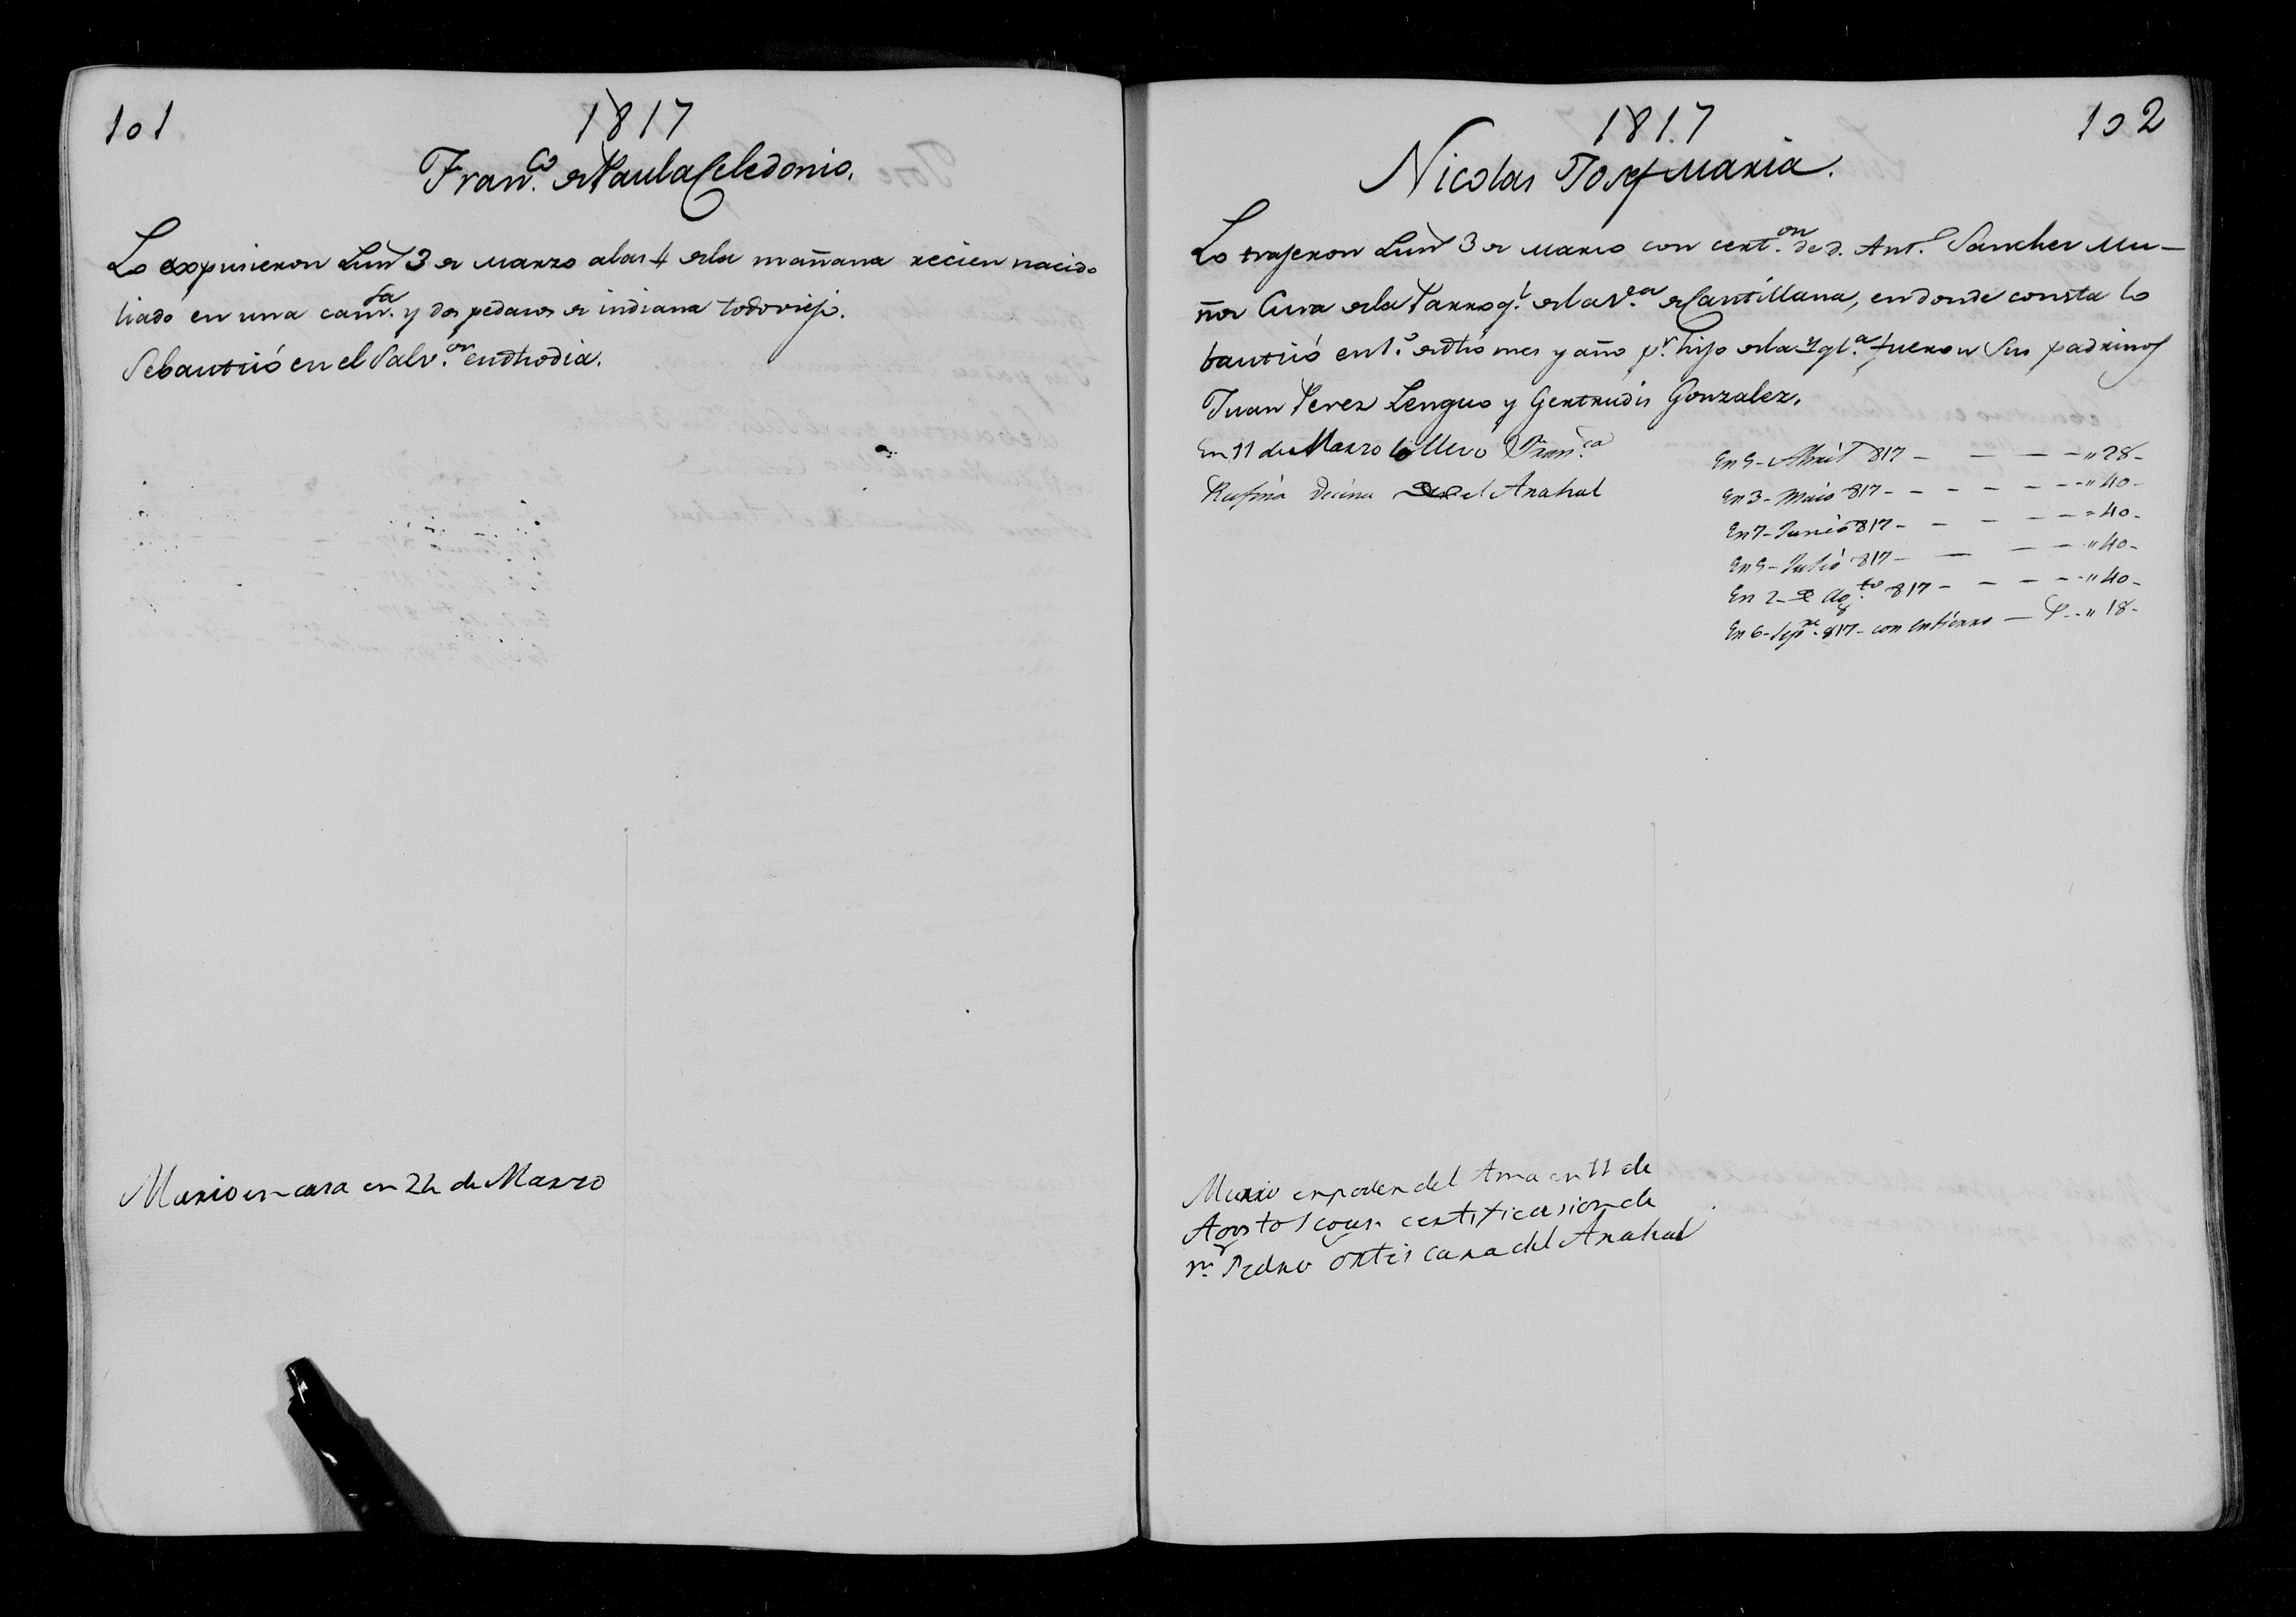 101
1817
Fran.co de Paula Celedonio.
Lo expusieron Lun.s 3 de Marzo a las 4 de la mañana recien nacido
liado en una cam.sa y dos pedazos de indiana todo viejo.
Se bautizó en el Salv.or en dho dia.
Murio en casa en 22 de Marzo
1817
102
Nicolas Josef Maria.
Lo trajeron Lun.s 3 de Marzo con cert.on de d. Ant.o Sanchez Mu-
ñoz Cura de la Parroq.l de la V.a de Cantillana, en donde consta lo
bautizó en 1.o de dho mes y año p.r hijo de la Ygl.a fueron Sus padrinos
Juan Perez Lenguo y Gertrudis Gonzalez.
En 11 de Marzo lo llevo Fran.ca
Rufina Vecina del Arahal
En 5 - Abril 817 - - - - " 28 -
En 3 - Maio 817 - - - - - - " 40 -
En 7 - Junio 817 - - - - - = 40 -
En 5 - Julio 817 - - - - " 40 -
En 2 - de Ag.to 817 - - - - - " 40 -
En 6 - Sep.re 817 - con entierro - - - " 18 -
Murio en poder del Ama en 11 de
Agosto segun certificasion de
Pedro Ortis cura del Arahal